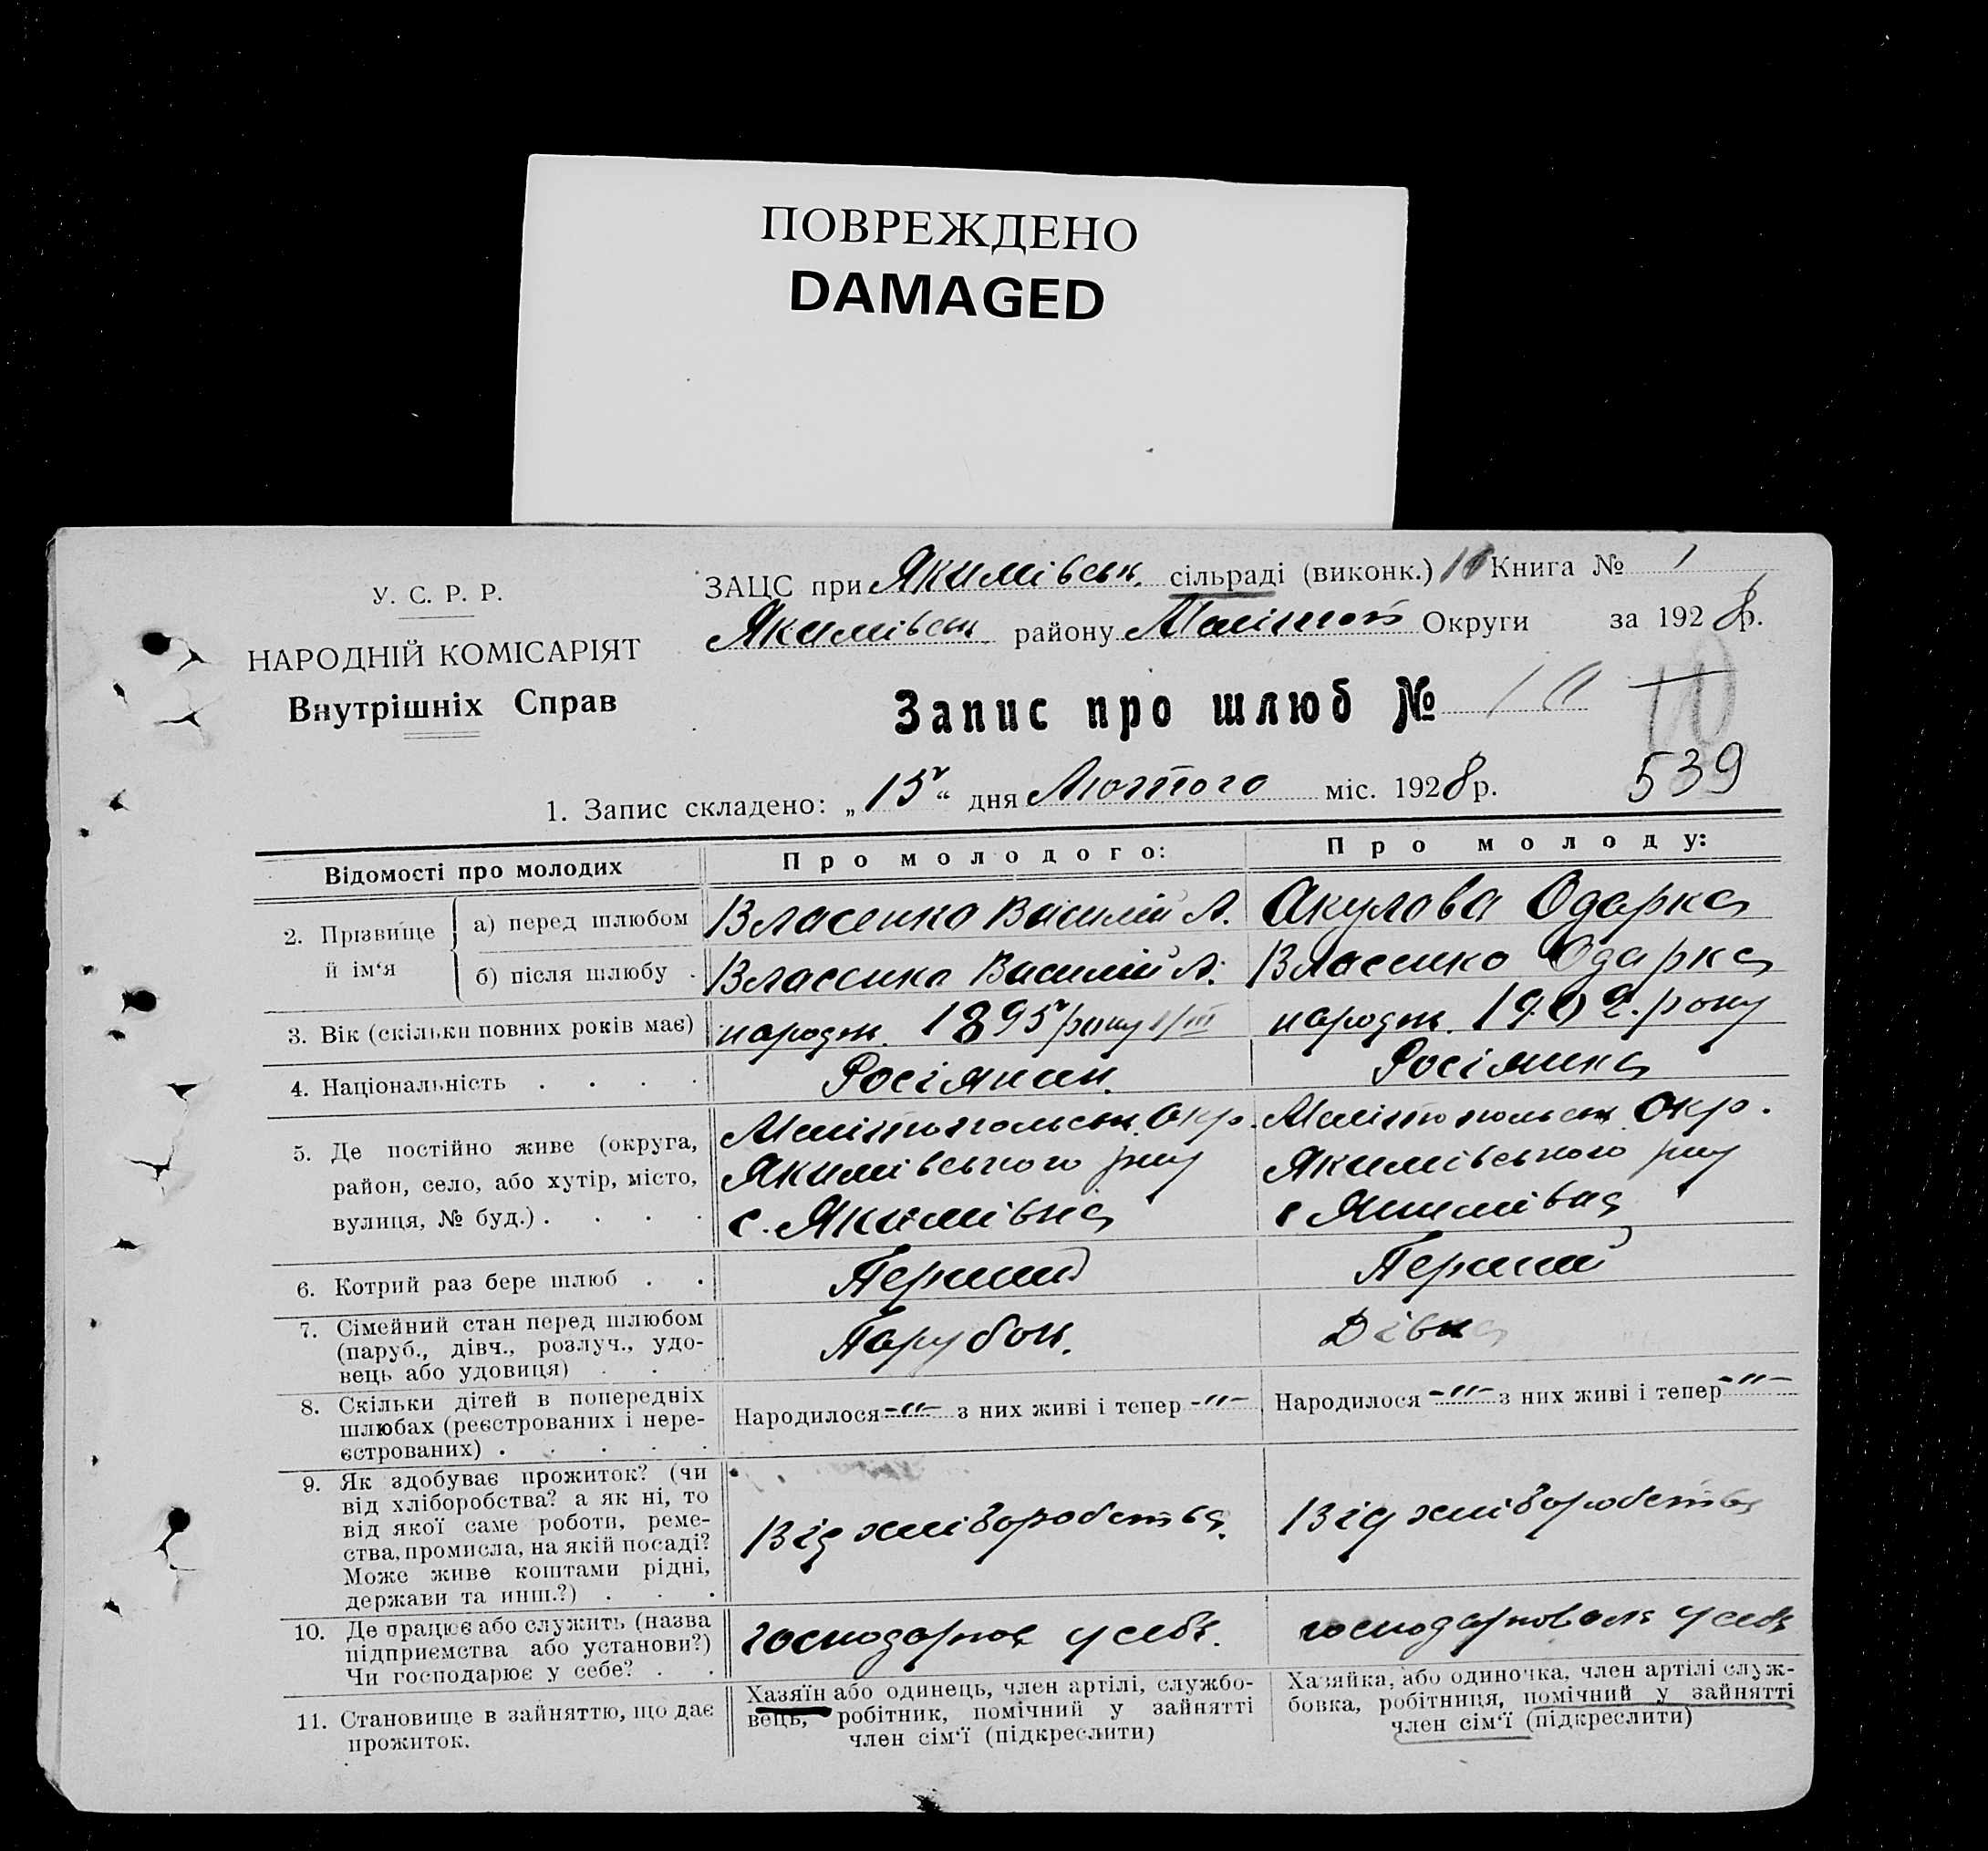 ПОВРЕЖДЕНО
DAMAGED
У. С. Р. Р.
НАРОДНІЙ КОМІСАРІЯТ
Внутрішніх Справ
ЗАЦС при Якимівськ. сільраді (виконк.) 10 Книга № 1
Якимівськ. району Меліт Округи за 1928 р.
Запис про шлюб № 10
10
539
1. Запис складено: „15“ дня Лютого міс. 1928 р.
Відомості про молодих Про молодого: Про молоду:
2. Прізвище й ім‘я а) перед шлюбом Власенко Василій Л. Акулова Одарка
б) після шлюбу . Власенко Василій Л. Власенко Одарка
3. Вік (скільки повних років має) народж. 1895 року 1/III народж. 1902. року
4. Національність . . . . Росіянин. Росіянка
5. Де постійно живе (округа, Мелітопольськ. Окр. Мелітопольськ. Окр.
район, село, або хутір, місто, Якимівського р-ну Якимівського р-ну
вулиця, № буд.) . . . . с. Якимівка с Якимівка
6. Котрий раз бере шлюб . . Перший Перший
7. Сімейний стан перед шлюбом
(паруб., дівч., розлуч., удо- Парубок. Дівка
вець або удовиця) . . .
8. Скільки дітей в попередніх
шлюбах (реєстрованих і нере- Народилося -"- з них живі і тепер -"- Народилося -"- з них живі і тепер -"-
єстрованих) . . . . .
9. Як здобуває прожиток? (чи
від хліборобства? а як ні, то
від якої саме роботи, реме- Від хліборобства. Від хліборобства
ства, промисла, на якій посаді?
Може живе коштами рідні,
держави та инш.?) . . .
10. Де працює або служить (назва
підприємства або установи?) господарює у себе. господарювала у себе
Чи господарює у себе? . .
11. Становище в зайняттю, що дає Хазяїн або одинець, член артілі, службо- Хазяйка, або одиночка, член артілі служ-
прожиток. вець, робітник, помічний у зайнятті бовка, робітниця, помічний у зайнятті
член сім‘ї (підкреслити) член сім‘ї (підкреслити)